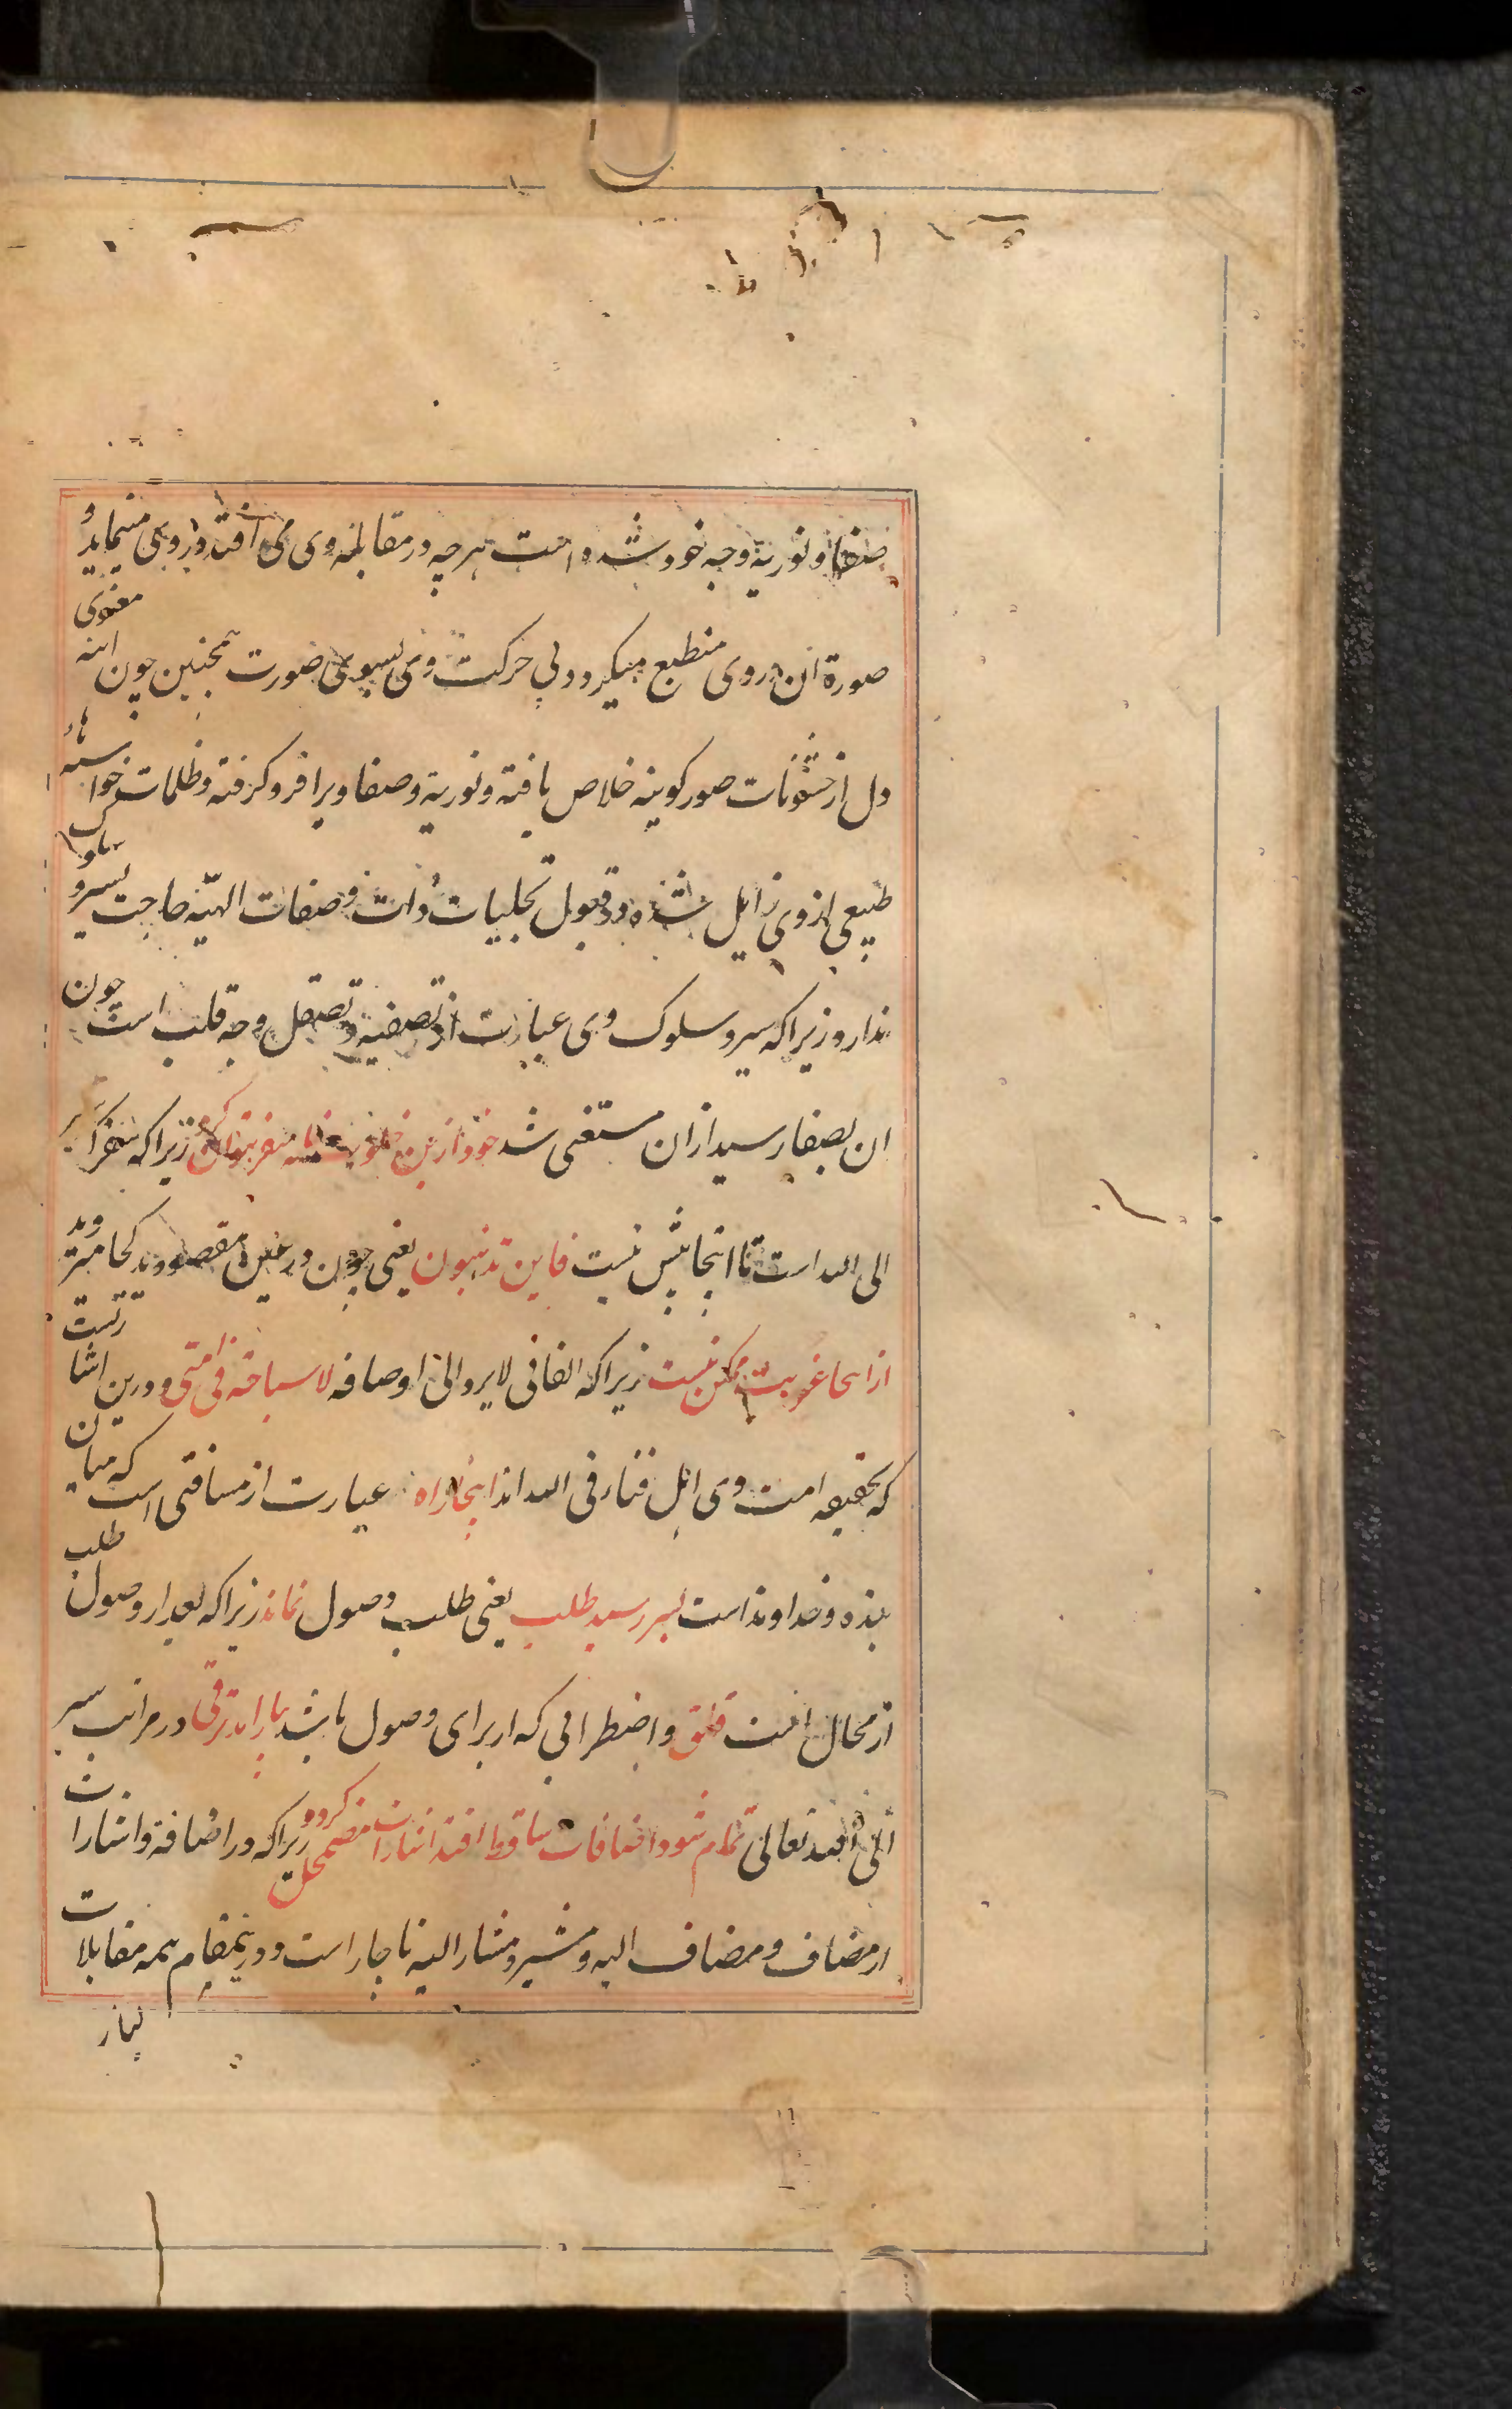 صفا و نوریة وجه خود شده است هر چه در مقابله وی می افتد در وی مینماید و
صورة آن در وی منطبع میگردد بی حرکت وی بسوی صورت همچنین چون آینه معنوی
دل از خشونات صور کونیه خلاص یافته و نوریة و صفا ویرا فرو گرفته و ظلمات خواستهاء
طبیعی از وی زایل شده در قبول تجلیات ذات و صفات الهیه حاجت بسیر و سلوک
ندارد زیرا که سیر و سلوک وی عبارت از تصفیه و تصقل وجه قلب است چون
ان بصفا رسید از ان مستغنی شد خود ازین خلوت خانه سفر نتوان کرد زیرا که سفر آن
الی الله است تا اینجا بیش نیست فاین تذهبون یعنی چون در عین مقصودند کجا میروند
از اینجا غربت ممکن نیست زیرا که الفانی لا یرد الی اوصافه لا سیاحة فی امتی و درین اشارتست
که بحقیقه امت وی اهل فناء فی الله اند اینجا راه عبارت از مسافتی است که میان
بنده و خداوند است بسر رسید طلب یعنی طلب وصول نماند زیرا که بعد از وصول طلب
از محال است قلق و اضطرابی که از برای وصول باشد بیارامد ترقی در مراتب سیر
الی الله تعالی تمام شود اضافات ساقط افتد اشارات مضمحل گردد زیرا که در اضافة و اشارات
از مضاف و مضاف الیه و مشیر و مشار الیه ناچار است و درینمقام همه مقابلات